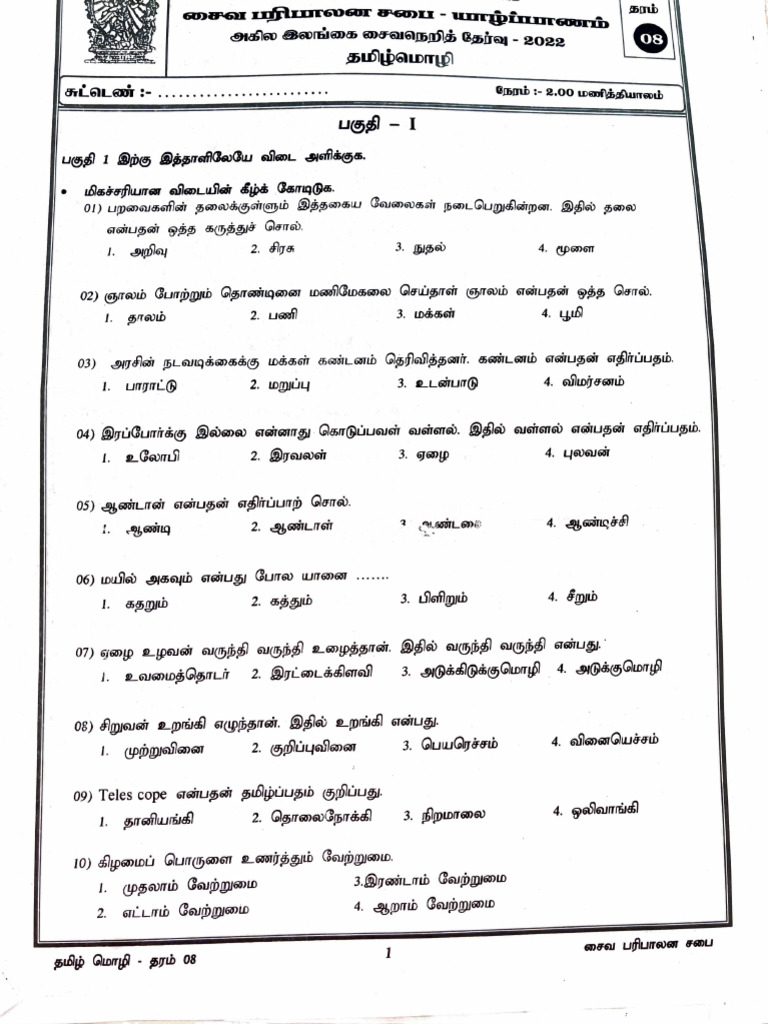 சைவ பரிபாலன சபை - யாழ்ப்பாணம்
அகில இலங்கை சைவநெறித் தேர்வு - 2022
தமிழ்மொழி
தரம்
08
சுட்டெண் :- ........................
நேரம் :- 2.00 மணித்தியாலம்
பகுதி – I
பகுதி 1 இற்கு இத்தாளிலேயே விடை அளிக்குக.
• மிகச்சரியான விடையின் கீழ்க் கோடிடுக.
01) பறவைகளின் தலைக்குள்ளும் இத்தகைய வேலைகள் நடைபெறுகின்றன. இதில் தலை
என்பதன் ஒத்த கருத்துச் சொல்.
1. அறிவு 2. சிரசு 3. நுதல் 4. மூளை
02) ஞாலம் போற்றும் தொண்டினை மணிமேகலை செய்தாள் ஞாலம் என்பதன் ஒத்த சொல்.
1. தாலம் 2. பணி 3. மக்கள் 4. பூமி
03) அரசின் நடவடிக்கைக்கு மக்கள் கண்டனம் தெரிவித்தனர். கண்டனம் என்பதன் எதிர்ப்பதம்.
1. பாராட்டு 2. மறுப்பு 3. உடன்பாடு 4. விமர்சனம்
04) இரப்போர்க்கு இல்லை என்னாது கொடுப்பவள் வள்ளல். இதில் வள்ளல் என்பதன் எதிர்ப்பதம்.
1. உலோபி 2. இரவலள் 3. ஏழை 4. புலவன்
05) ஆண்டான் என்பதன் எதிர்ப்பாற் சொல்.
1. ஆண்டி 2. ஆண்டாள் 3 4. ஆண்டிச்சி
06) மயில் அகவும் என்பது போல யானை .......
1. கதறும் 2. கத்தும் 3. பிளிறும் 4. சீறும்
07) ஏழை உழவன் வருந்தி வருந்தி உழைத்தான். இதில் வருந்தி வருந்தி என்பது.
1. உவமைத்தொடர் 2. இரட்டைக்கிளவி 3. அடுக்கிடுக்குமொழி 4. அடுக்குமொழி
08) சிறுவன் உறங்கி எழுந்தான். இதில் உறங்கி என்பது.
1. முற்றுவினை 2. குறிப்புவினை 3. பெயரெச்சம் 4. வினையெச்சம்
09) Teles cope என்பதன் தமிழ்ப்பதம் குறிப்பது.
1. தானியங்கி 2. தொலைநோக்கி 3. நிறமாலை 4. ஒலிவாங்கி
10) கிழமைப் பொருளை உணர்த்தும் வேற்றுமை.
1. முதலாம் வேற்றுமை 3.இரண்டாம் வேற்றுமை
2. எட்டாம் வேற்றுமை 4. ஆறாம் வேற்றுமை
தமிழ் மொழி - தரம் 08
1
சைவ பரிபாலன சபை